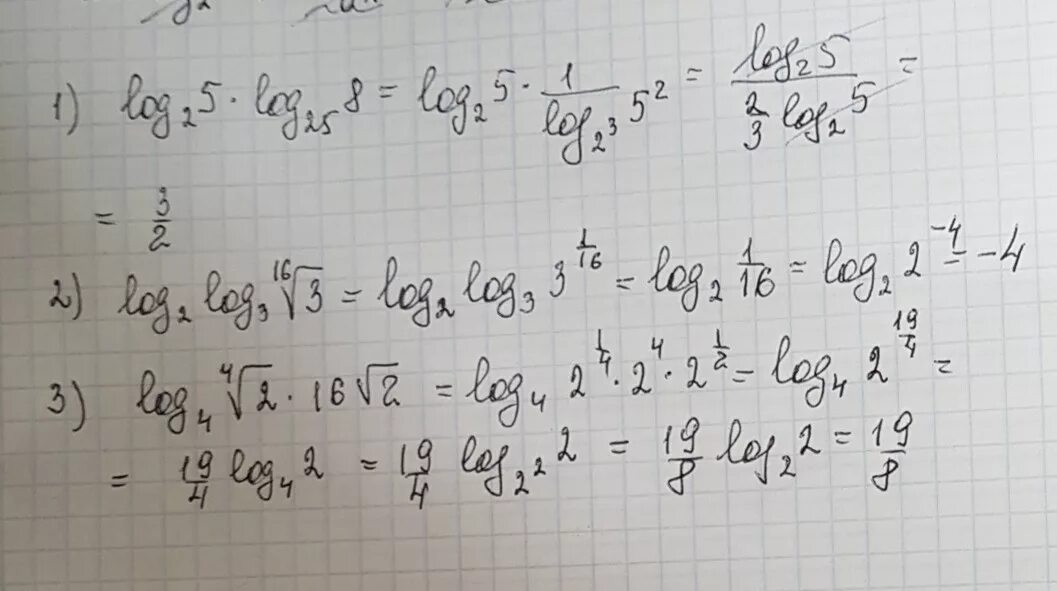 1) log₂5 · log₂₅8 = log₂5 · 1/(log_{2³}5²) = (log₂5)/(2/3 log₂5) =
= 3/2
2) log₂ log₃ ¹⁶√3 = log₂ log₃ 3^{1/16} = log₂ 1/16 = log₂ 2⁻⁴ = -4
3) log₄ ⁴√2 · 16√2 = log₄ 2^{1/4} · 2⁴ · 2^{1/2} = log₄ 2^{19/4} =
= 19/4 log₄2 = 19/4 log_{2²}2 = 19/8 log₂2 = 19/8